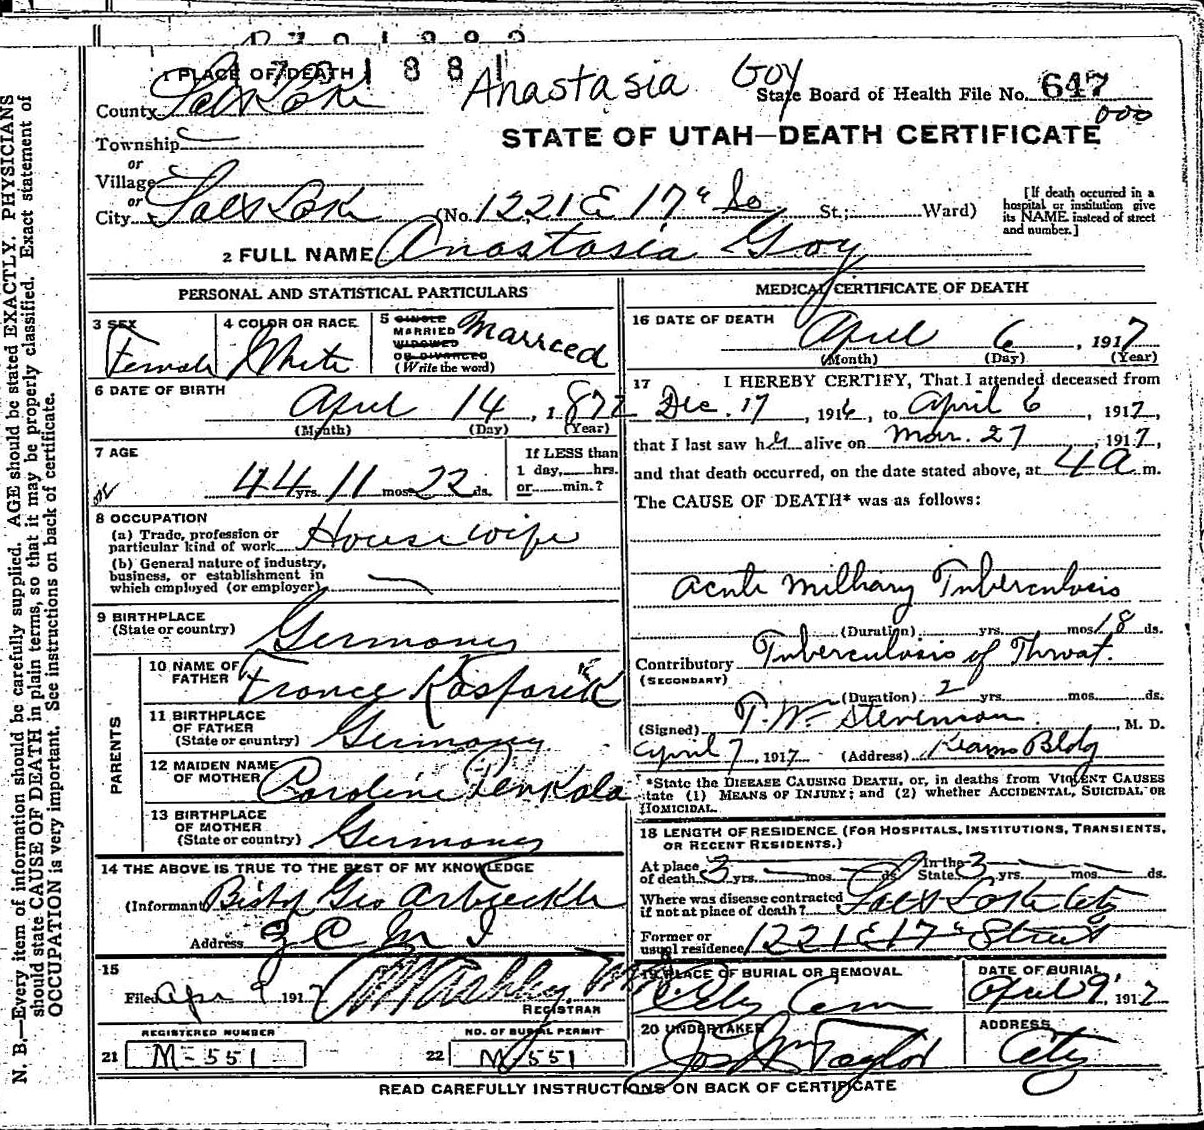 1 PLACE OF DEATH
1881
Anastasia Goy
County Salt Lake
State Board of Health File No. 647
000
Township
STATE OF UTAH—DEATH CERTIFICATE
or
Village
or
City Salt Lake (No. 1221 E 17" So St.; Ward)
[If death occurred in a hospital or institution give its NAME instead of street and number.]
2 FULL NAME Anastasia Goy
PERSONAL AND STATISTICAL PARTICULARS
3 SEX Female
4 COLOR OR RACE White
5 SINGLE MARRIED WIDOWED OR DIVORCED (Write the word) Married
6 DATE OF BIRTH April 14, 1872
(Month) (Day) (Year)
7 AGE 44 yrs. 11 mos. 22 ds.
If LESS than 1 day, hrs. or min.?
8 OCCUPATION
(a) Trade, profession or particular kind of work Housewife
(b) General nature of industry, business, or establishment in which employed (or employer)
9 BIRTHPLACE (State or country) Germany
PARENTS
10 NAME OF FATHER Kasparick
11 BIRTHPLACE OF FATHER (State or country) Germany
12 MAIDEN NAME OF MOTHER Caroline Penkala
13 BIRTHPLACE OF MOTHER (State or country) Germany
14 THE ABOVE IS TRUE TO THE BEST OF MY KNOWLEDGE
(Informant Bishop Geo Arbuckle
Address Z C M I
15
Filed Apr 9 1917 Ashley M
REGISTRAR
REGISTERED NUMBER
21 M-551
NO. OF BURIAL PERMIT
22 M-551
MEDICAL CERTIFICATE OF DEATH
16 DATE OF DEATH April 6, 1917
(Month) (Day) (Year)
17 I HEREBY CERTIFY, That I attended deceased from
Dec. 17, 1916, to April 6, 1917,
that I last saw her alive on Mar. 27, 1917,
and that death occurred, on the date stated above, at 4 a m.
The CAUSE OF DEATH* was as follows:
Acute Milliary Tuberculosis
(Duration) yrs. mos. 18 ds.
Contributory Tuberculosis of Throat.
(SECONDARY)
(Duration) 2 yrs. mos. ds.
(Signed) T. W. Stevenson, M. D.
April 7, 1917 (Address) Kearns Bldg
*State the DISEASE CAUSING DEATH, or, in deaths from VIOLENT CAUSES
state (1) MEANS OF INJURY; and (2) whether ACCIDENTAL, SUICIDAL OR
HOMICIDAL.
18 LENGTH OF RESIDENCE (FOR HOSPITALS, INSTITUTIONS, TRANSIENTS,
OR RECENT RESIDENTS.)
At place of death 3 yrs. mos. ds. In the State 3 yrs. mos. ds.
Where was disease contracted if not at place of death? Salt Lake City
Former or usual residence 1221 E 17" Street
19 PLACE OF BURIAL OR REMOVAL City Cem
DATE OF BURIAL April 9, 1917
20 UNDERTAKER Jos Wm Taylor
ADDRESS City
READ CAREFULLY INSTRUCTIONS ON BACK OF CERTIFICATE
N. B.—Every item of information should be carefully supplied. AGE should be stated EXACTLY. PHYSICIANS
should state CAUSE OF DEATH in plain terms, so that it may be properly classified. Exact statement of
OCCUPATION is very important. See instructions on back of certificate.